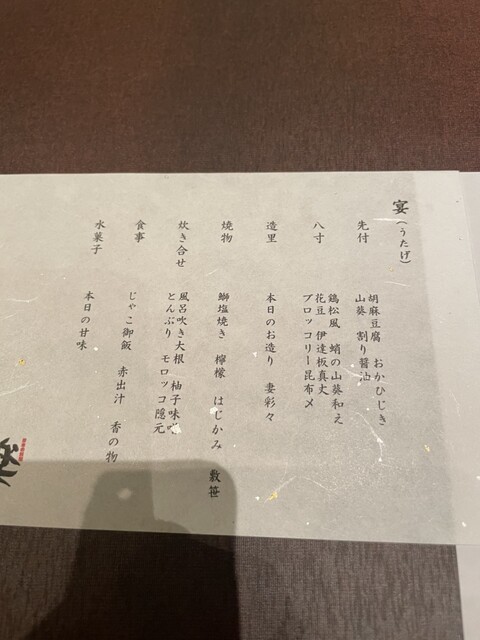 宴(うたげ)
先付
胡麻豆腐 おかひじき
山葵 割り醤油
八寸
鶏松風 蛸の山葵和え
花豆 伊達板真丈
ブロッコリー昆布〆
造里
本日のお造り 妻彩々
焼物
鰤塩焼き 檸檬 はじかみ 敷笹
炊き合せ
風呂吹き大根 柚子味噌
とんぶり モロッコ隠元
食事
じゃこ御飯 赤出汁 香の物
水菓子
本日の甘味